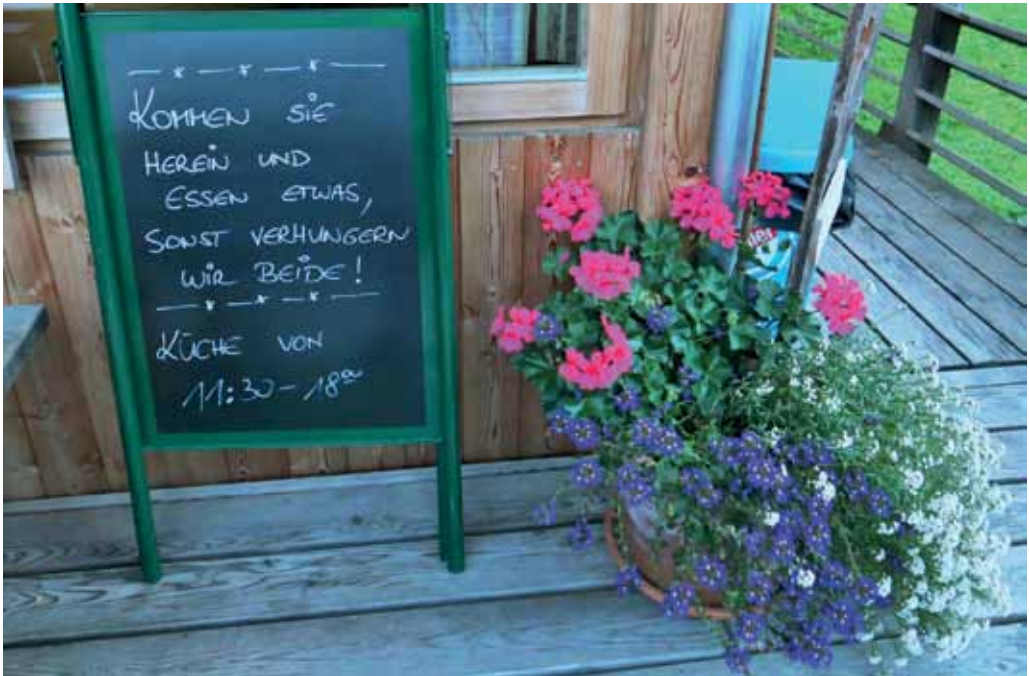 KOMMEN SIE
HEREIN UND
ESSEN ETWAS,
SONST VERHUNGERN
WIR BEIDE!
KÜCHE VON
11:30-18⁰⁰